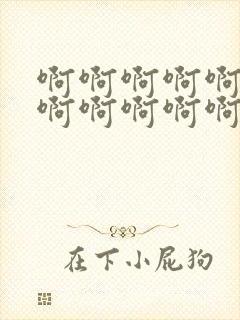 啊啊啊啊啊
啊啊啊啊啊
在下小屁狗